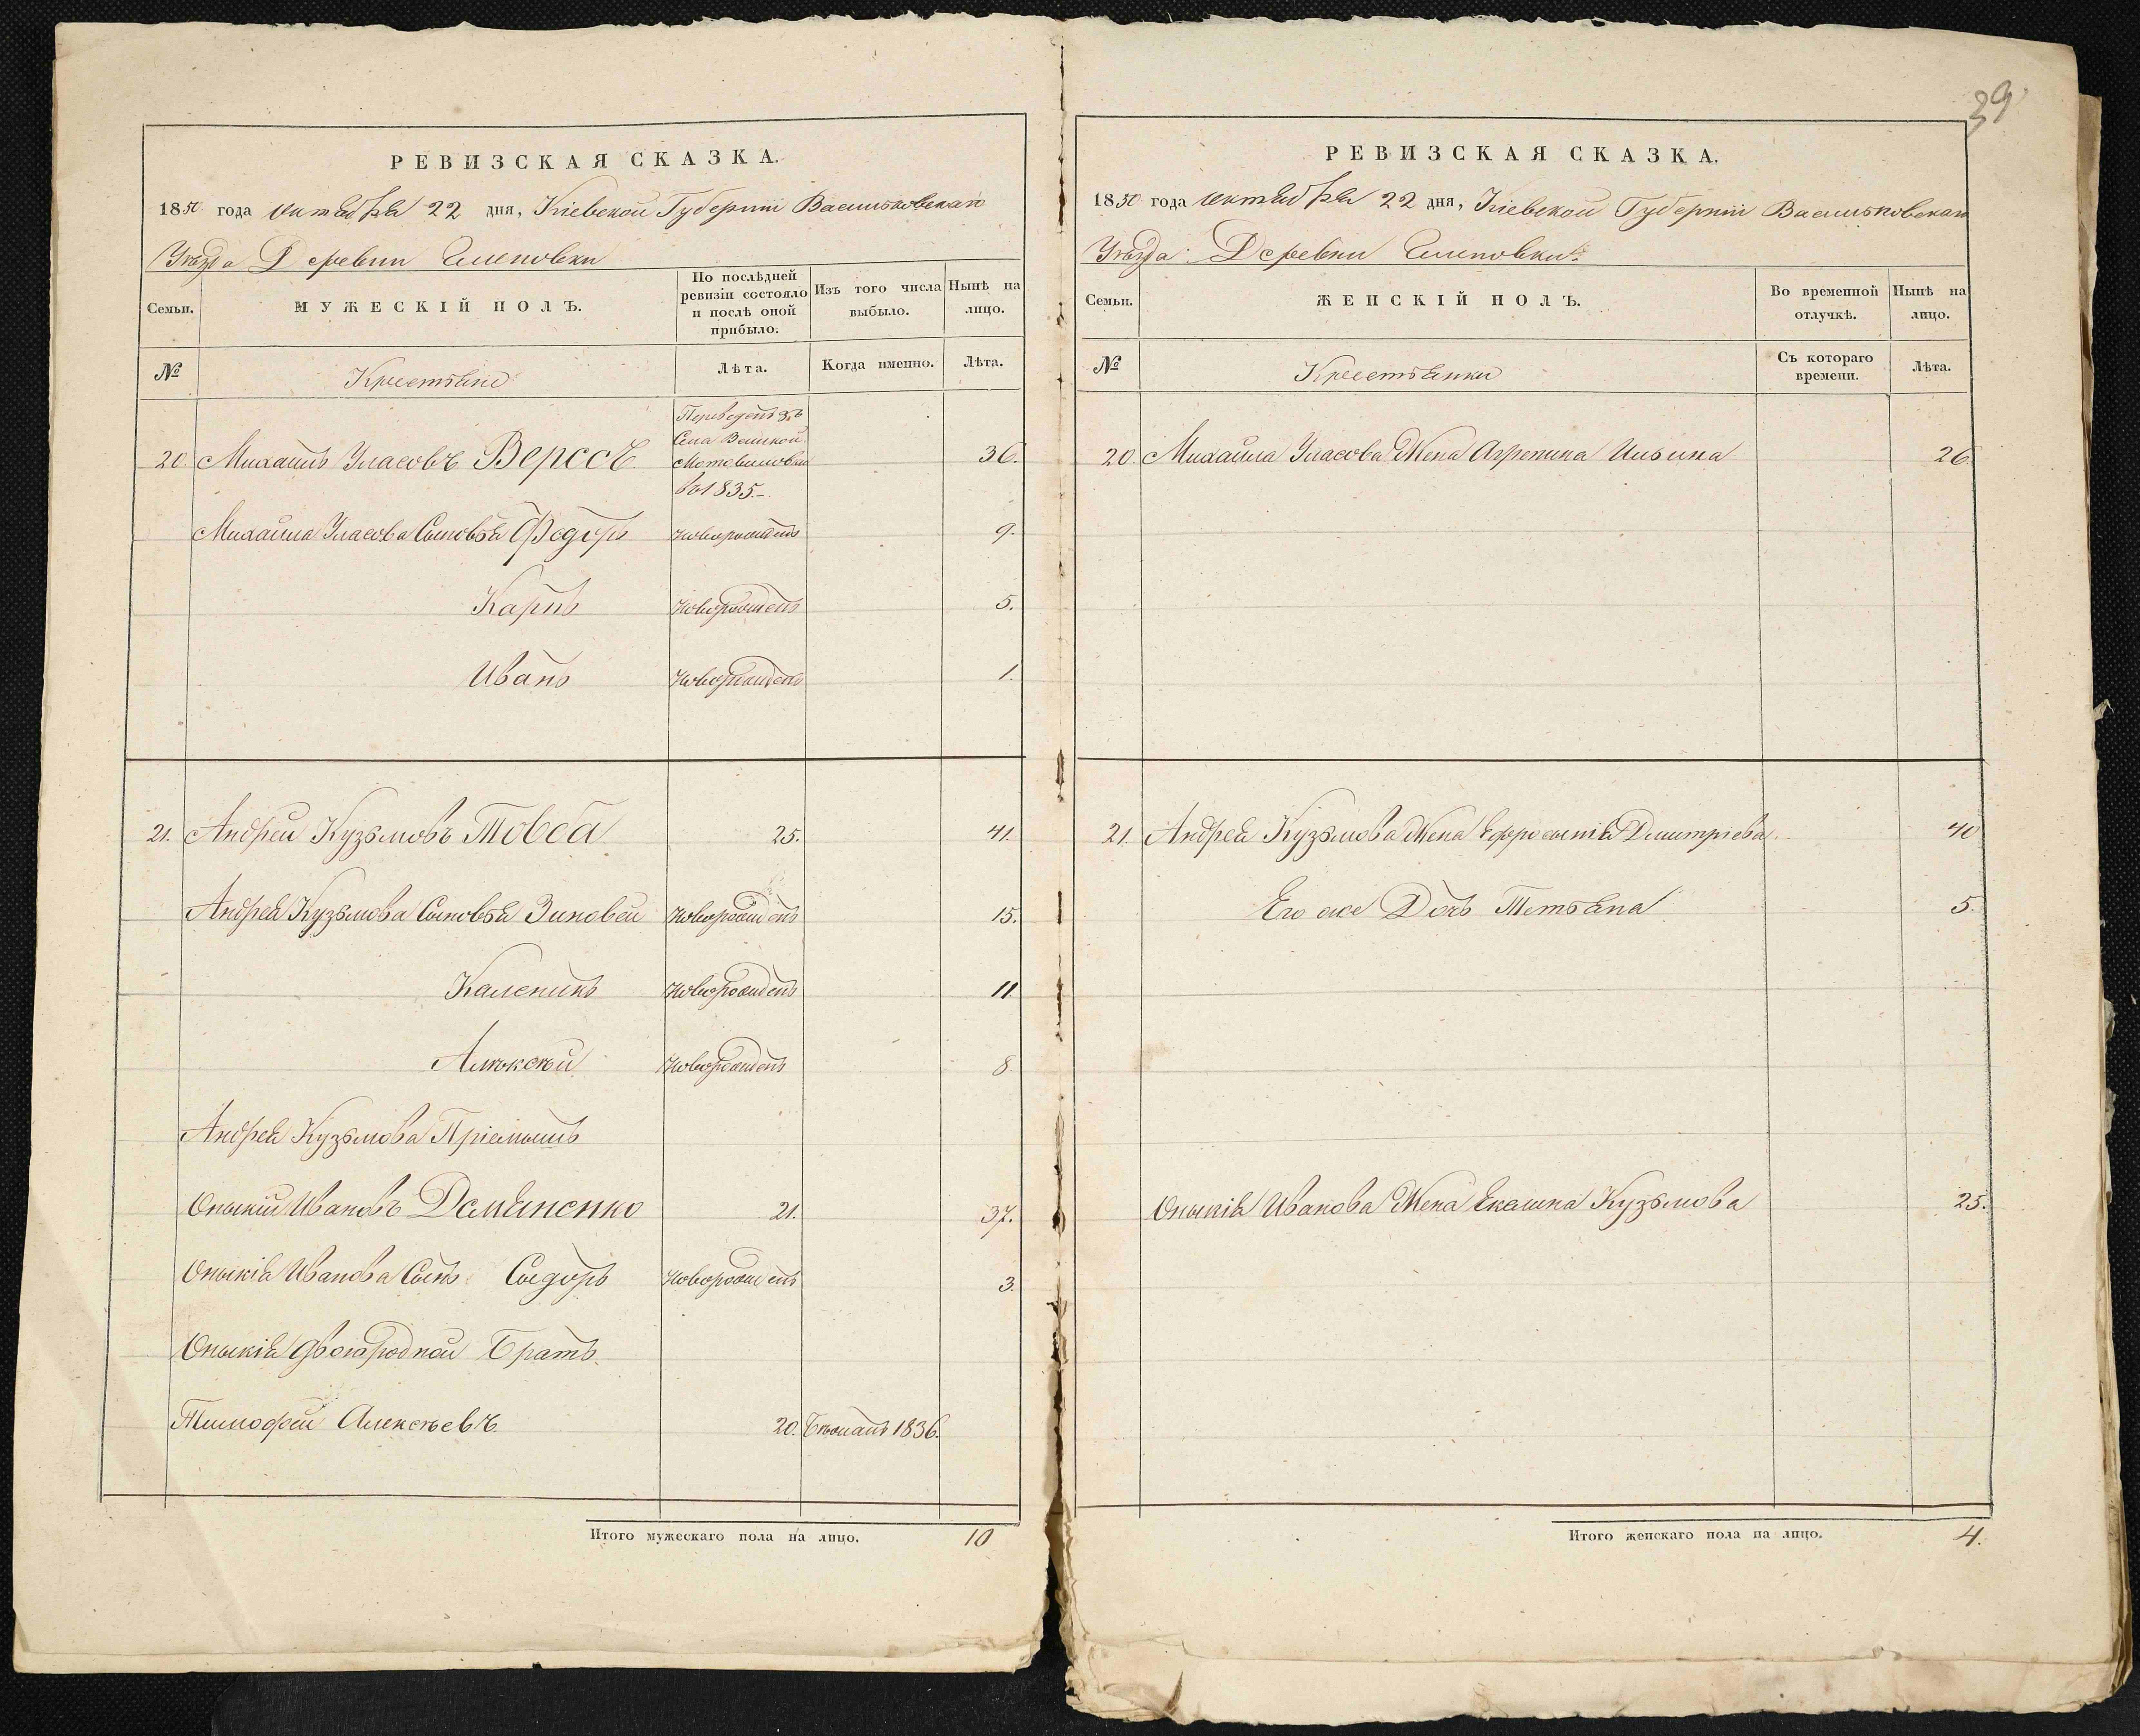 39
РЕВИЗСКАЯ СКАЗКА.
1850 года октября 22 дня, Кіевской Губерніи Васильковскаго
Уѣзда Деревни
Семьи.
МУЖЕСКІЙ ПОЛЪ.
По послѣдней ревизіи состояло и послѣ оной прибыло.
Изъ того числа выбыло.
Нынѣ на лицо.
№
Крестьяне
Лѣта.
Когда именно.
Лѣта.
Переведенъ изъ
Села Великой
Мотовиловки
въ 1835.-
20. Михаилъ Уласовъ Вересъ 36.
Михаила Уласова Сыновья Федоръ новорожденъ 9.
Карпъ новорожденъ 5.
Иванъ новорожденъ 1.
21. Андрей Кузьмовъ Товста 25. 41.
Андрея Кузьмова Сыновья Зиновей новорожденъ 15.
Каленикъ новорожденъ 11.
Алѣксѣй новорожденъ 8
Андрея Кузьмова Пріемышъ
Оныкій Ивановъ Демьяненко 21. 37.
Оныкія Иванова Сынъ Сыдоръ новорожденъ 3.
Оныкія двоюродной Братъ
Тимофей Алексѣевъ 20. Бѣжалъ 1836.
Итого мужескаго пола на лицо. 10
РЕВИЗСКАЯ СКАЗКА.
1850 года октября 22 дня, Кіевской Губерніи Васильковскаго
Уѣзда Деревни
Семьи.
ЖЕНСКІЙ ПОЛЪ.
Во временной отлучкѣ.
Нынѣ на лицо.
№
Крестьянки
Съ котораго времени.
Лѣта.
20. Михаила Уласова Жена Агрепина Ильина 26.
21. Андрея Кузьмова Жена Ефросынія Дмитріева. 40
Его же Дочь Тетьяна 5.
Оныкія Иванова Жена Екатерина Кузьмова 25.
Итого женскаго пола на лицо. 4.